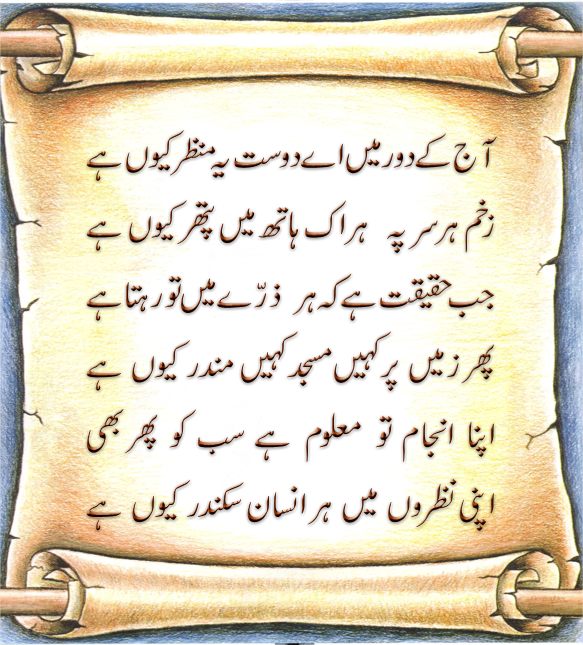 آج کے دور میں اے دوست یہ منظر کیوں ہے
زخم ہر سر پہ ہر اک ہاتھ میں پتھر کیوں ہے
جب حقیقت ہے کہ ہر ذرّے میں تو رہتا ہے
پھر زمیں پر کہیں مسجد کہیں مندر کیوں ہے
اپنا انجام تو معلوم ہے سب کو پھر بھی
اپنی نظروں میں ہر انسان سکندر کیوں ہے